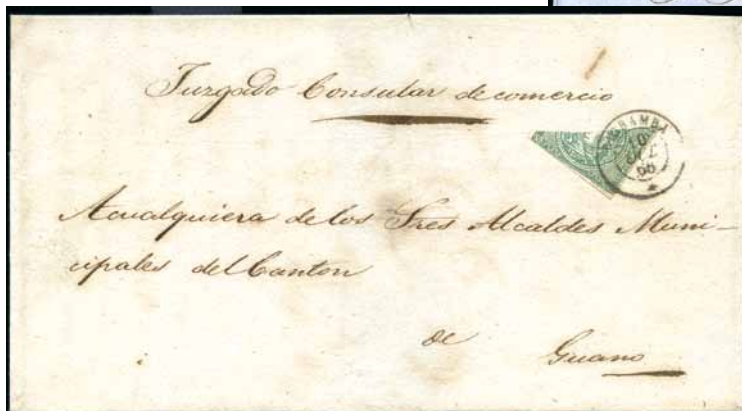 Juzgado Consular de comercio
10
JUL
66
Acualquiera de los Sres Alcaldes Muni-
cipales del Canton
de Guano